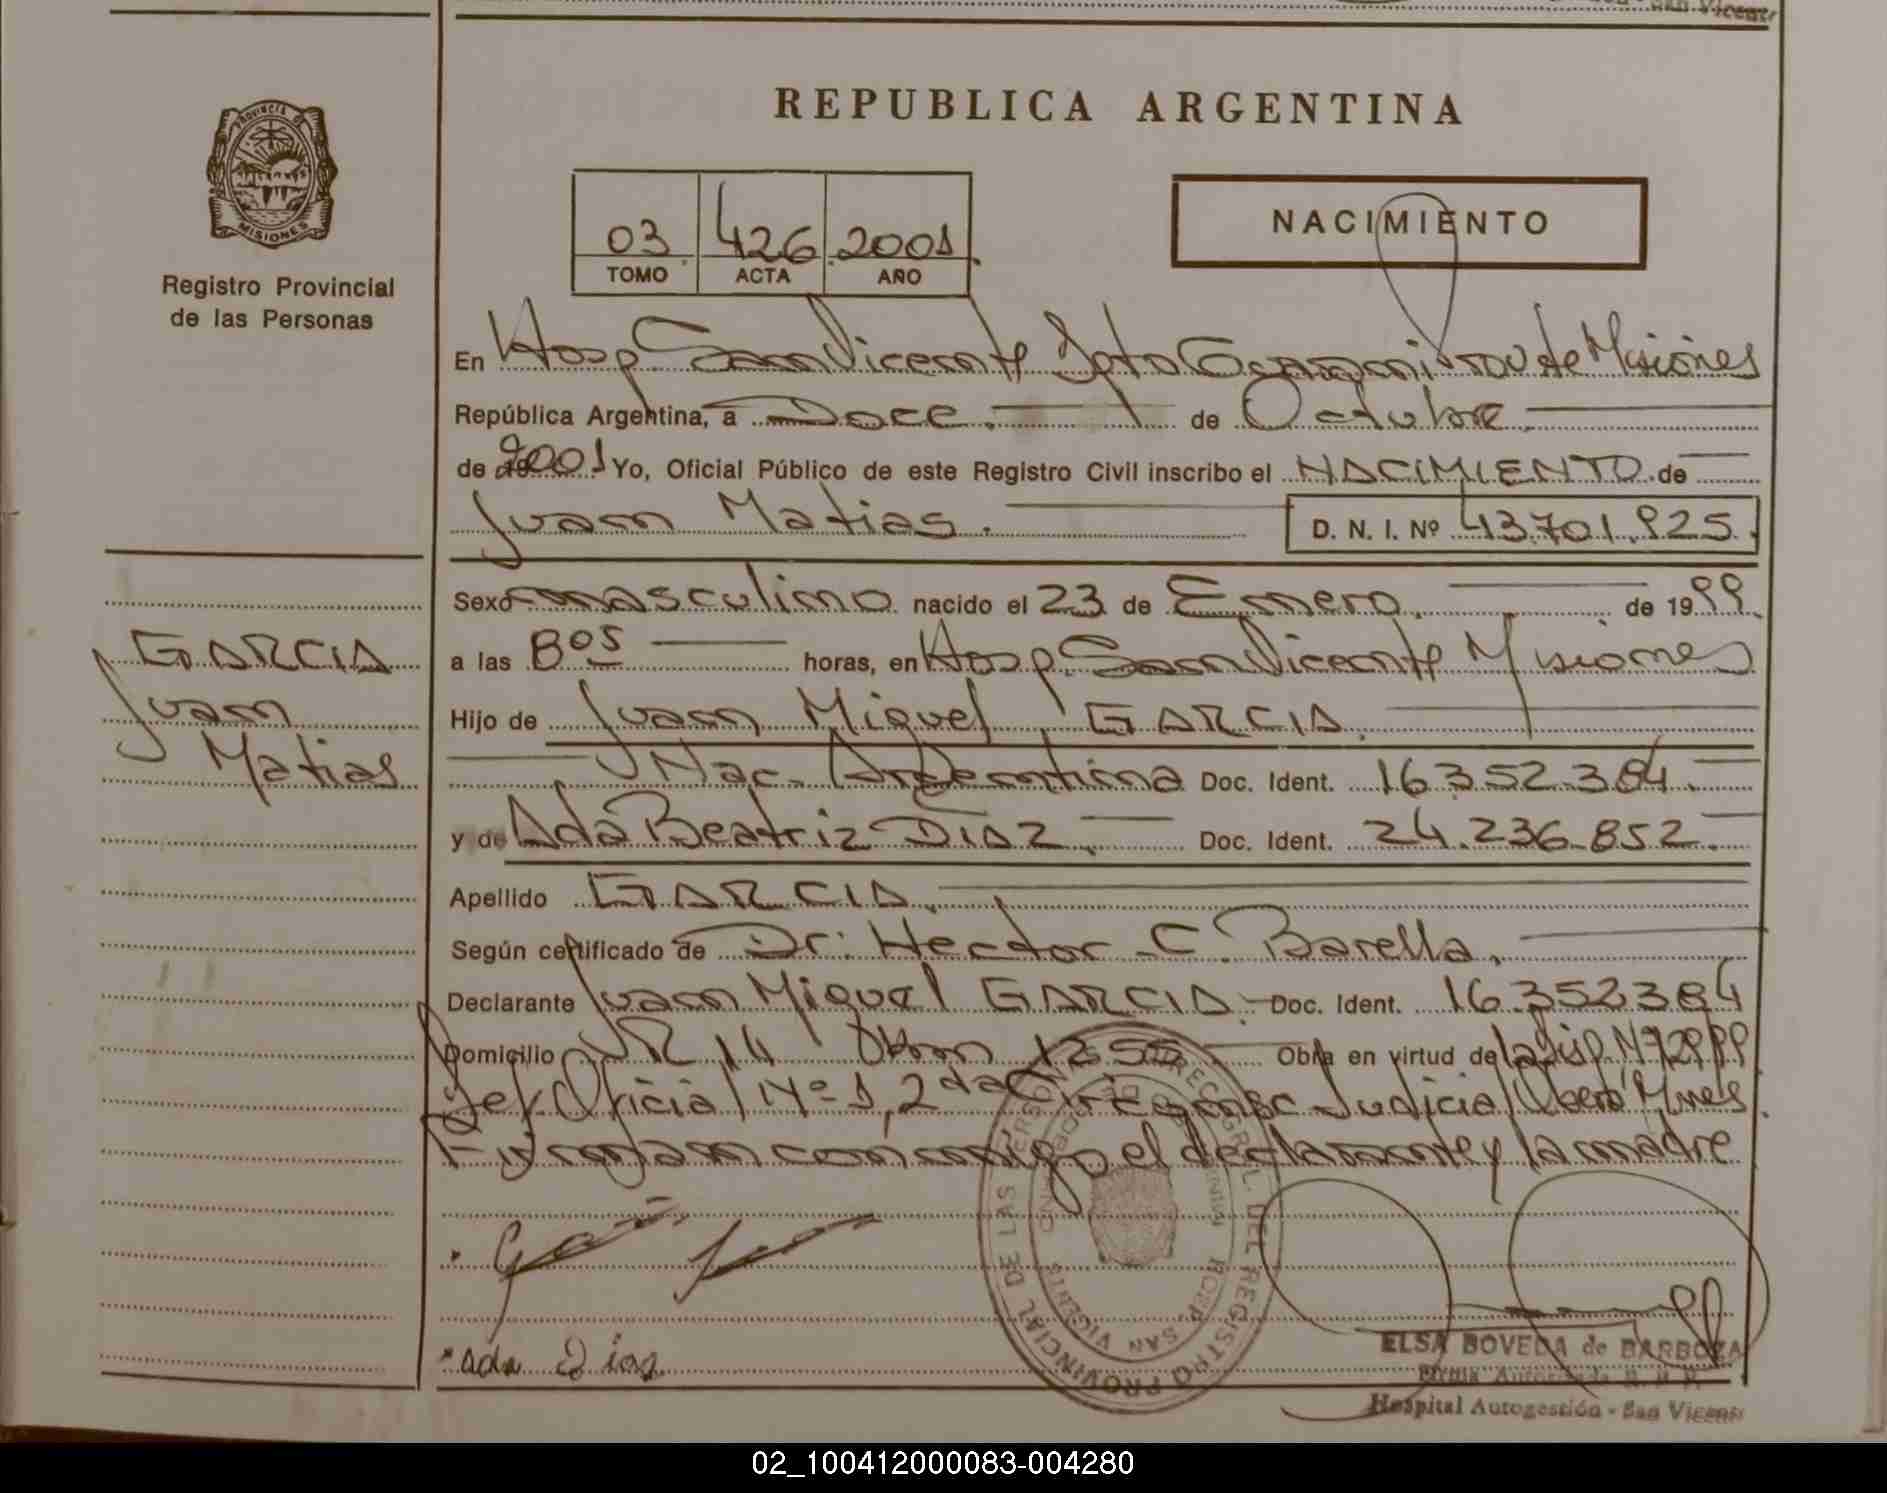 San Vicente
PROVINCIA D
MISIONES
Registro Provincial
de las Personas
REPUBLICA ARGENTINA
03 426 2001
TOMO ACTA AÑO
NACIMIENTO
En Hosp San Vicente Dpto Guarani Prov de Misiones
República Argentina, a Doce. de Octubre
de 2001 Yo, Oficial Público de este Registro Civil inscribo el NACIMIENTO de
Juan Matias. D. N. I. Nº 43.701.925.
Sexo masculino nacido el 23 de Enero. de 1999.
GARCIA
a las 8 05 horas, en Hosp. San Vicente Misiones
Juan
Hijo de Juan Miguel GARCIA.
Matias
Nac. Argentina Doc. Ident. 16.352.384.
y de Ada Beatriz DIAZ. Doc. Ident. 24.236.852.
Apellido GARCIA.
Según certificado de Dr. Hector C. Barella.
Declarante Juan Miguel GARCIA. Doc. Ident. 16.352384
Domicilio R 14 Km 1255 Obra en virtud de la Disp. Nº
Def. Oficial Nº 1, 2da Circunsc Judicial Obera Mnes.
Firman conmigo el declarante y la madre
Ada Diaz
REGISTRO PROVINCIAL DE LAS PERSONAS
HOSP. SAN VICENTE
ELSA BOVEDA de BARBOZA
Firma Autorizada R. P. P.
Hospital Autogestión - San Vicente
02_100412000083-004280